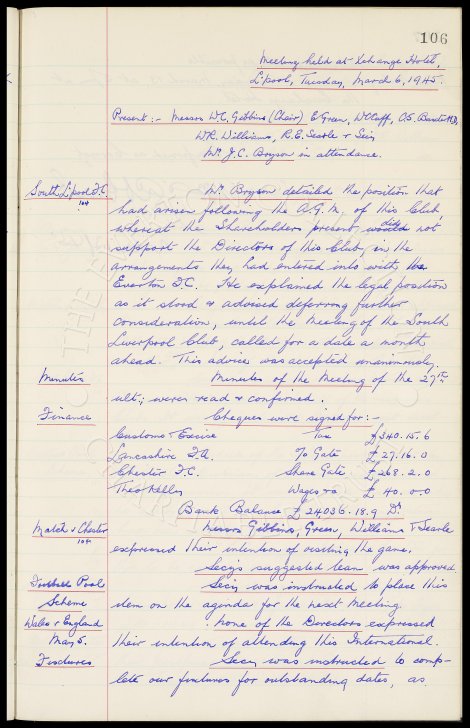 106
Meeting held at Exchange Hotel,
L'pool, Tuesday, March 6, 1945.
Present :- Messrs W.C. Gibbins (Chair) E. Green, W.C. Cuff, C.S. Baxter M.D.,
W.R. Williams, R.E. Searle & Secy
Mr. J.C. Bryson in attendance.
South L'pool F.C. Mr. Bryson detailed the position that
104
had arisen following the A.G.M. of this Club,
whereat the Shareholders present would did not
support the Directors of this Club, in the
arrangements they had entered into with the
Everton F.C. He explained the legal position
as it stood & advised deferring further
consideration, until the Meeting of the South
Liverpool Club, called for a date a month
ahead. This advice was accepted unanimously.
Minutes Minutes of the Meeting of the 27th
ult; were read & confirmed.
Finance Cheques were signed for :-
Customs & Excise Tax £340.15.6
Lancashire F.A. % Gate £27.16.0
Chester F.C. Share Gate £268.2.0
Theo Kelly Wages £40.0.0
Bank Balance £24036.18.9 Dr.
Match v Chester Messrs Gibbins, Green, Williams & Searle
104
expressed their intention of visiting the game.
Secy's suggested team was approved.
Football Pool Secy was instructed to place this
Scheme item on the agenda for the next Meeting.
Wales v England None of the Directors expressed
May 5. their intention of attending this International.
Fixtures Secy was instructed to comp-
lete our fixtures for outstanding dates, as